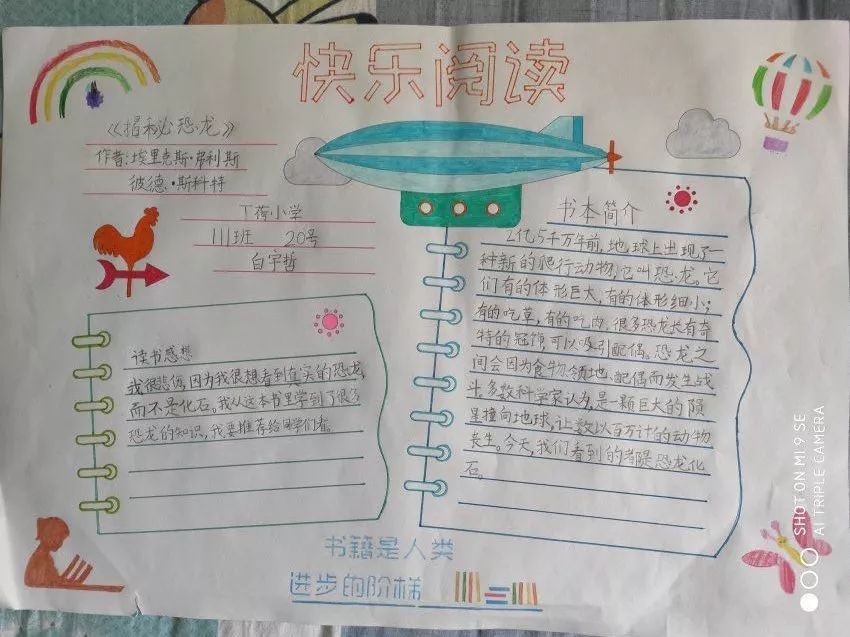 快乐阅读
《揭秘恐龙》
作者:埃里克斯·弗利斯
彼德·斯科特
丁荷小学
111班 20号
白宇哲
读书感想
我很悲伤,因为我很想看到真实的恐龙,
而不是化石。我从这本书里学到了很多
恐龙的知识,我要推荐给同学们看。
书本简介
2亿5千万年前,地球上出现了一
种新的爬行动物,它叫恐龙。它
们有的体形巨大,有的体形细小;
有的吃草,有的吃肉。很多恐龙长有奇
特的冠饰,可以吸引配偶。恐龙之
间会因为食物、领地、配偶而发生战
斗。多数科学家认为,是一颗巨大的陨
星撞向地球,让数以百万计的动物
丧生。今天,我们看到的都是恐龙化
石。
书籍是人类
进步的阶梯
SHOT ON MI 9 SE
AI TRIPLE CAMERA